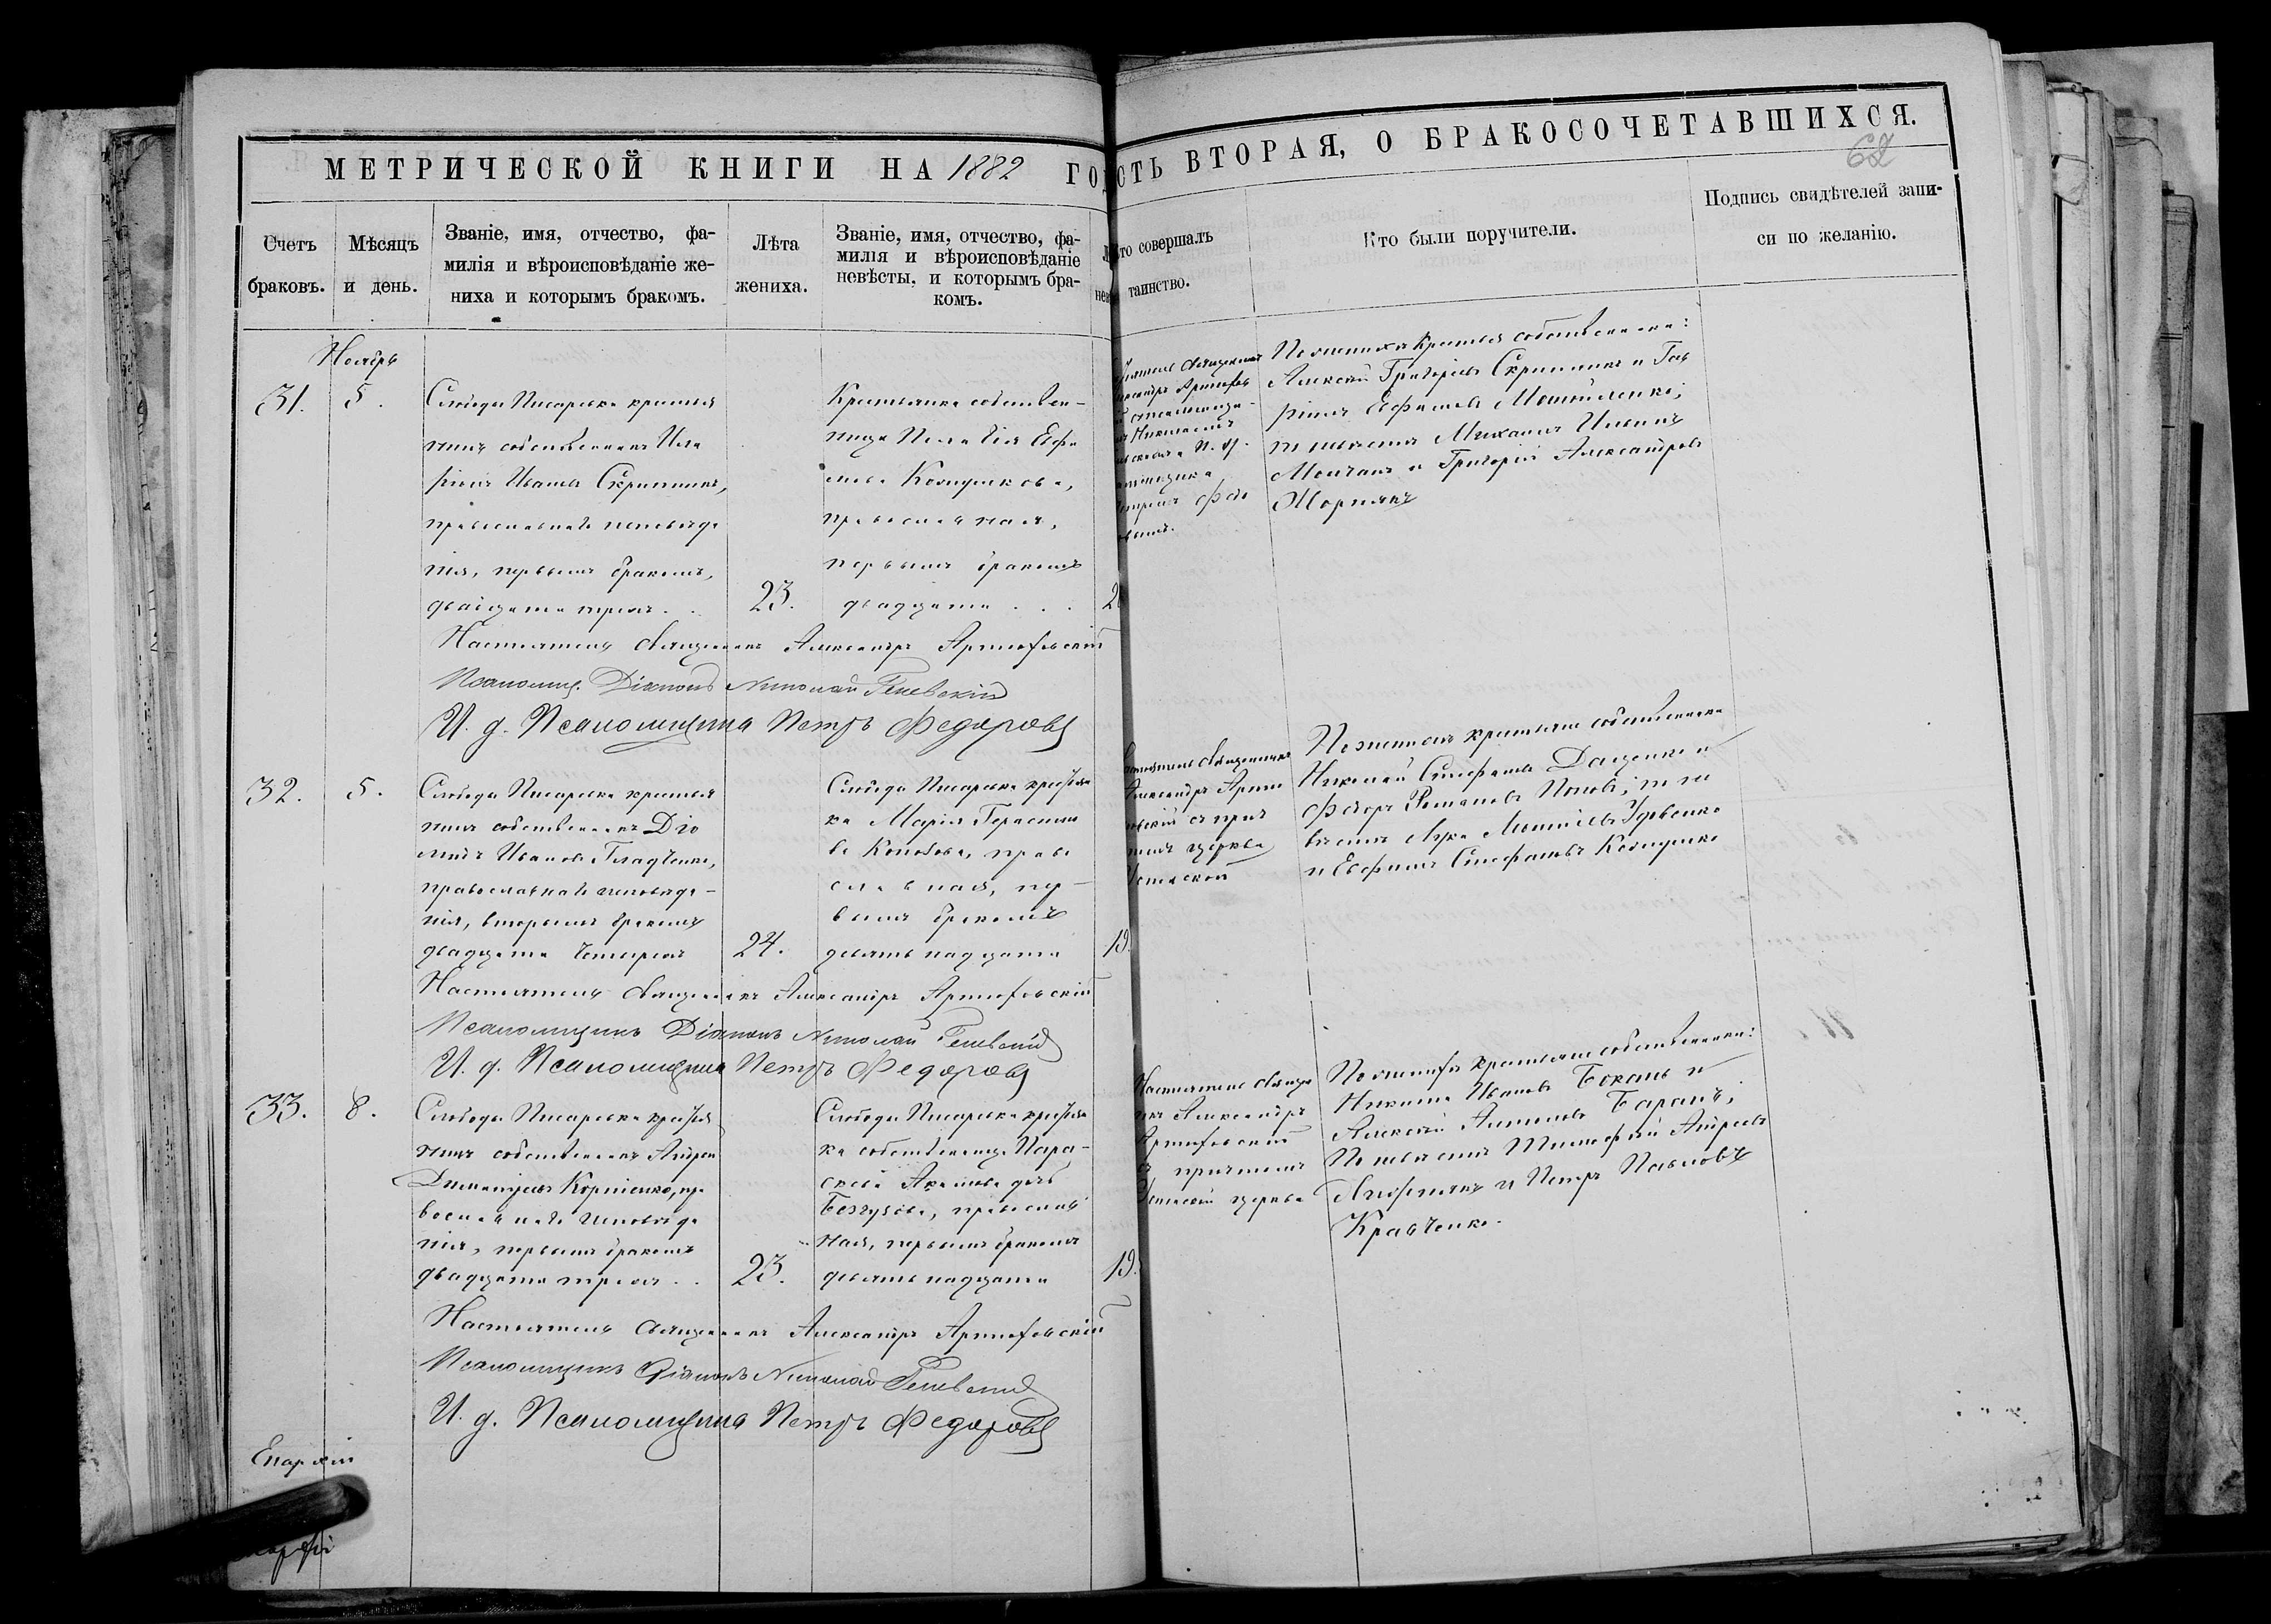 МЕТРИЧЕСКОЙ КНИГИ НА 1882 ГО
СТЬ ВТОРАЯ, О БРАКОСОЧЕТАВШИХСЯ.
62
Счетъ
браковъ.
Мѣсяцъ
и день.
Званіе, имя, отчество, фа-
милія и вѣроисповѣданіе же-
ниха и которымъ бракомъ.
Лѣта
жениха.
Званіе, имя, отчество, фа-
милія и вѣроисповѣданіе
невѣсты, и которымъ бра-
комъ.
то совершалъ
таинство.
Кто были поручители.
Подпись свидѣтелей запи-
си по желанію.
Ноябрь
31.
5.
Слободы Писаревки крестья
нинъ собственникъ Ила
ріонъ Ивановъ Скрипникъ,
православнаго исповѣда
нія, первымъ бракомъ,
двадцати трехъ . .
23.
Крестьянка собствен-
ница Пелагія Ефи
мова Колядикова,
православная,
первымъ бракомъ
двадцати . . .
2
Александръ Артюхов
По женихѣ крестьяне собственники:
Алексѣй Григорьевъ Скрипникъ и Гав
ріилъ Ефимовъ
по невѣстѣ Михаилъ Ильинъ
Молчанъ и Григорій Александровъ
Настоятель Священникъ Александръ Артюховскій
Псаломщ. Діаконъ Николай
И. д. Псаломщика Петръ Федоровъ
32.
5.
Слободы Писаревки крестья
нинъ собственникъ Діо
мидъ Ивановъ Гладченко,
православнаго исповѣда-
нія, вторымъ бракомъ
двадцати четырехъ
24.
Слободы Писаревки крестьян
ка Марія Герасимо
ва Попова, право
славная, пер-
вымъ бракомъ
девятнадцати
19.
Настоятель Священникъ
Александръ Артю
ховскій съ при
томъ церкви
По женихѣ крестьяне собственники
Николай Стефановъ Даценко и
Федоръ Романовъ Поповъ; по не
вѣстѣ Лука
и Евфимъ Стефановъ Колядико
Настоятель Священникъ Александръ Артюховскій
Псаломщикъ Діаконъ Николай
И. д. Псаломщика Петръ Федоровъ
33.
8.
Слободы Писаревки крестья
нинъ собственникъ Андрей
Димитріевъ Корніенко, пра
вославнаго исповѣда
нія, первымъ бракомъ
двадцати трехъ . .
23.
Слободы Писаревки крестьян
ка собственница Пара-
скева Акимова дочь
православ
ная, первымъ бракомъ
девятнадцати
19.
Настоятель Священ
никъ Александръ
Артюховскій
съ причтомъ
церкви
По женихѣ крестьяне собственники:
Никита Ивановъ Бокань и
Алексѣй Антоновъ Баранъ;
По невѣстѣ Тимофей Андреевъ
и Петръ Павловъ
Кравченко.
Настоятель Священникъ Александръ Артюховскій
Псаломщикъ Діаконъ Николай
И. д. Псаломщика Петръ Федоровъ
Епархіи